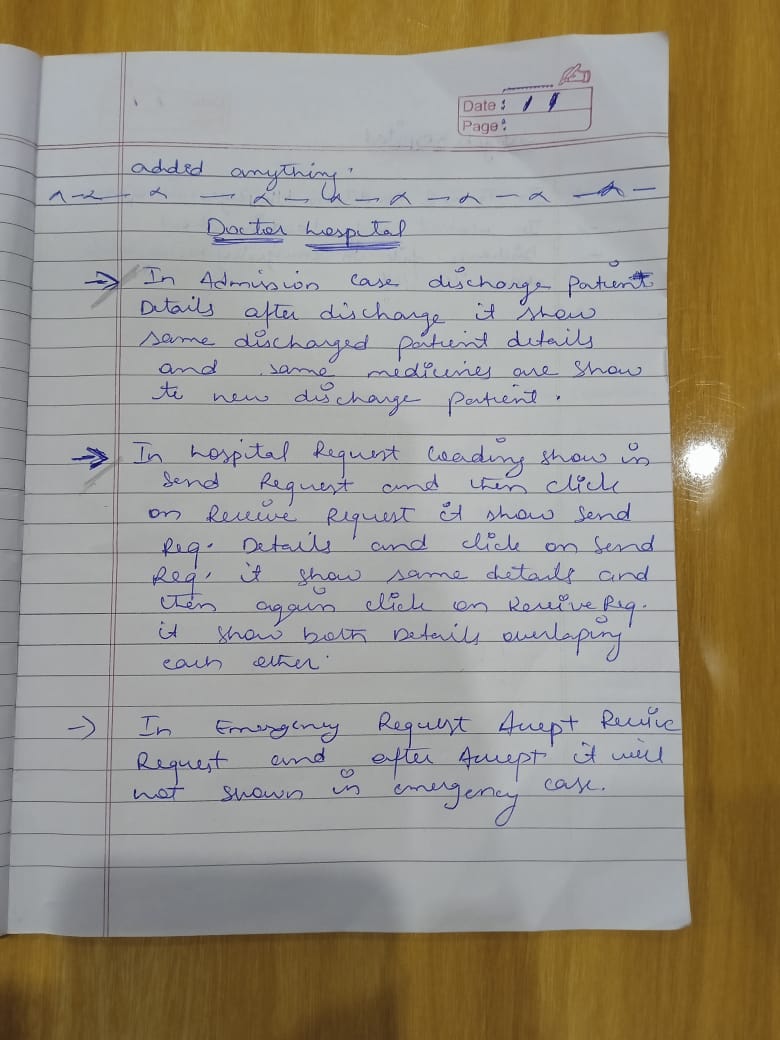 Date :
Page :
added anything.
Doctor hospital
→ In Admission case discharge patient
Details after discharge it show
same discharged patient details
and same medicines are show
to new discharge patient.
→ In hospital Request loading show in
Send Request and then click
on Receive Request it show Send
Req. Details and click on Send
Req. it show same details and
then again click on Receive Req.
it show both Details overlaping
each other.
→ In Emergency Request Accept Receive
Request and after Accept it will
not shown in emergency case.